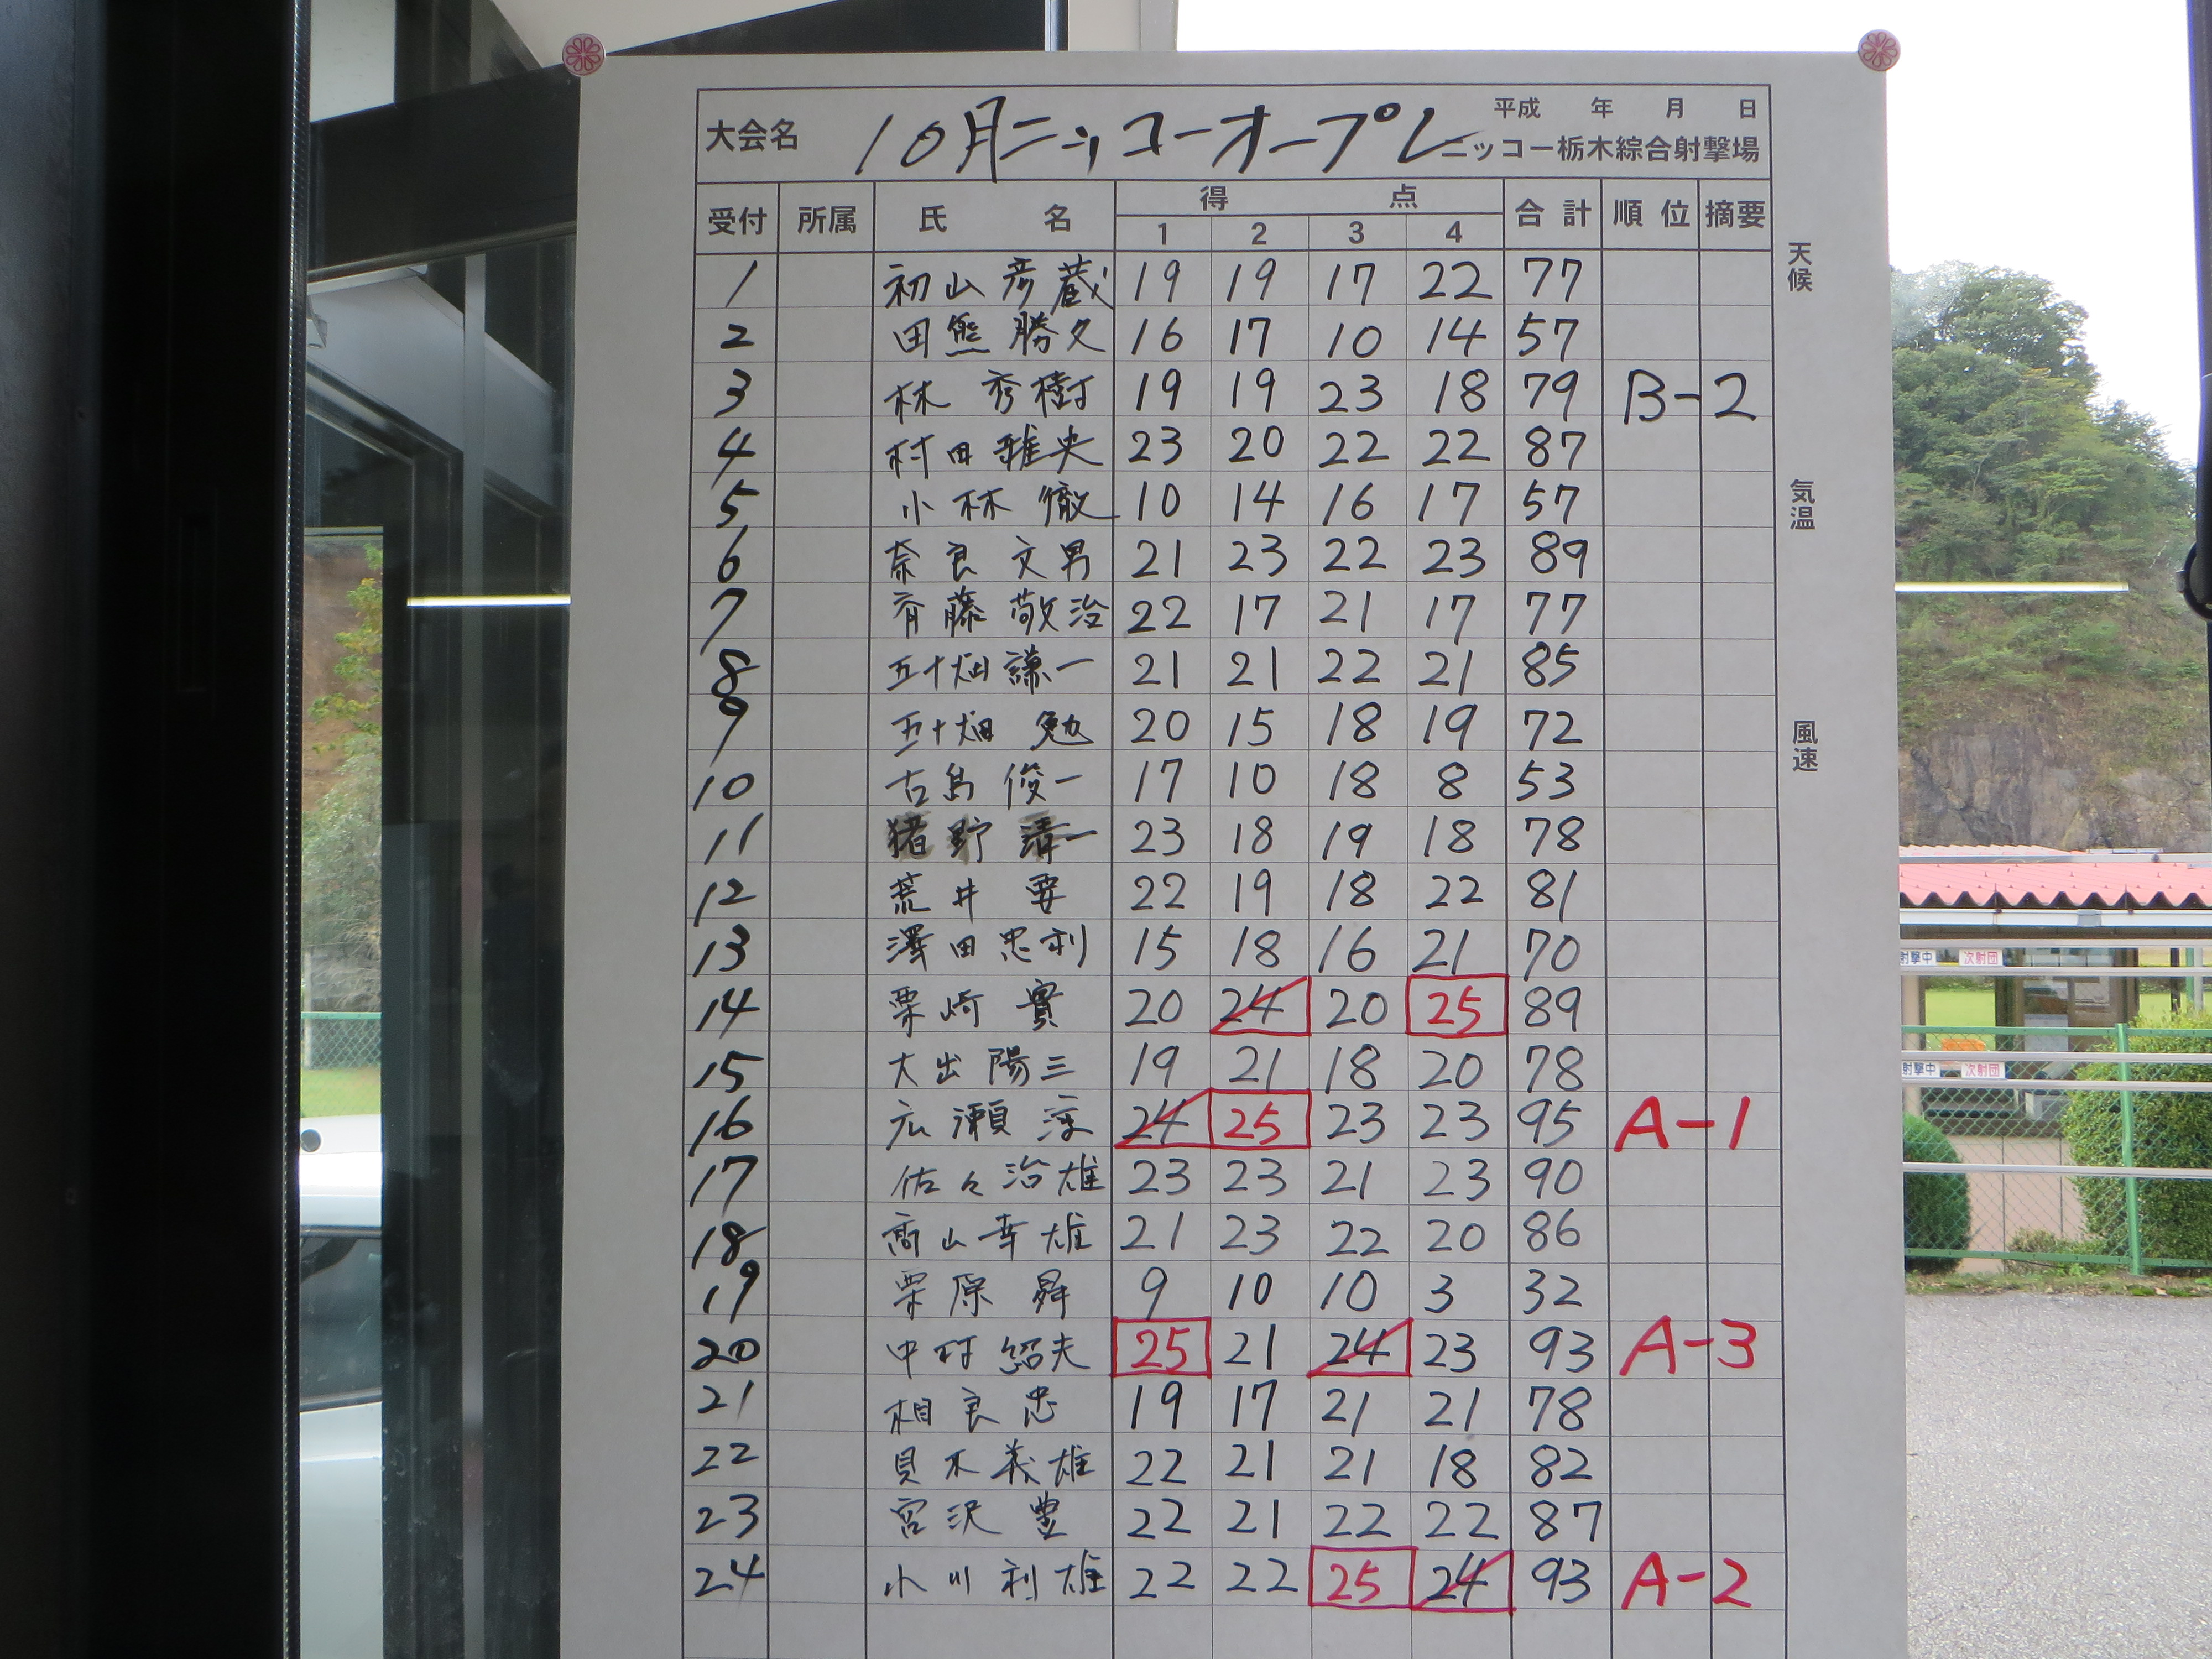 平成 年 月 日
大会名 10月ニッコーオープン ニッコー栃木綜合射撃場
受付 所属 氏名 得点 合計 順位 摘要
1 2 3 4
1 初山彦蔵 19 19 17 22 77
2 田熊勝久 16 17 10 14 57
3 林秀樹 19 19 23 18 79 B-2
4 村田雅央 23 20 22 22 87
5 小林徹 10 14 16 17 57
6 奈良文男 21 23 22 23 89
7 斉藤敬治 22 17 21 17 77
8 五十畑謙一 21 21 22 21 85
9 五十畑勉 20 15 18 19 72
10 古島俊一 17 10 18 8 53
11 猪野清一 23 18 19 18 78
12 荒井要 22 19 18 22 81
13 澤田忠利 15 18 16 21 70
14 栗崎實 20 24 20 25 89
15 大出陽三 19 21 18 20 78
16 広瀬淳 24 25 23 23 95 A-1
17 佐々治雄 23 23 21 23 90
18 高山幸雄 21 23 22 20 86
19 栗原 9 10 10 3 32
20 中村紹夫 25 21 24 23 93 A-3
21 相良忠 19 17 21 21 78
22 貝木義雄 22 21 21 18 82
23 宮沢豊 22 21 22 22 87
24 小川利雄 22 22 25 24 93 A-2
天候
気温
風速
射撃中 次射団
射撃中 次射団